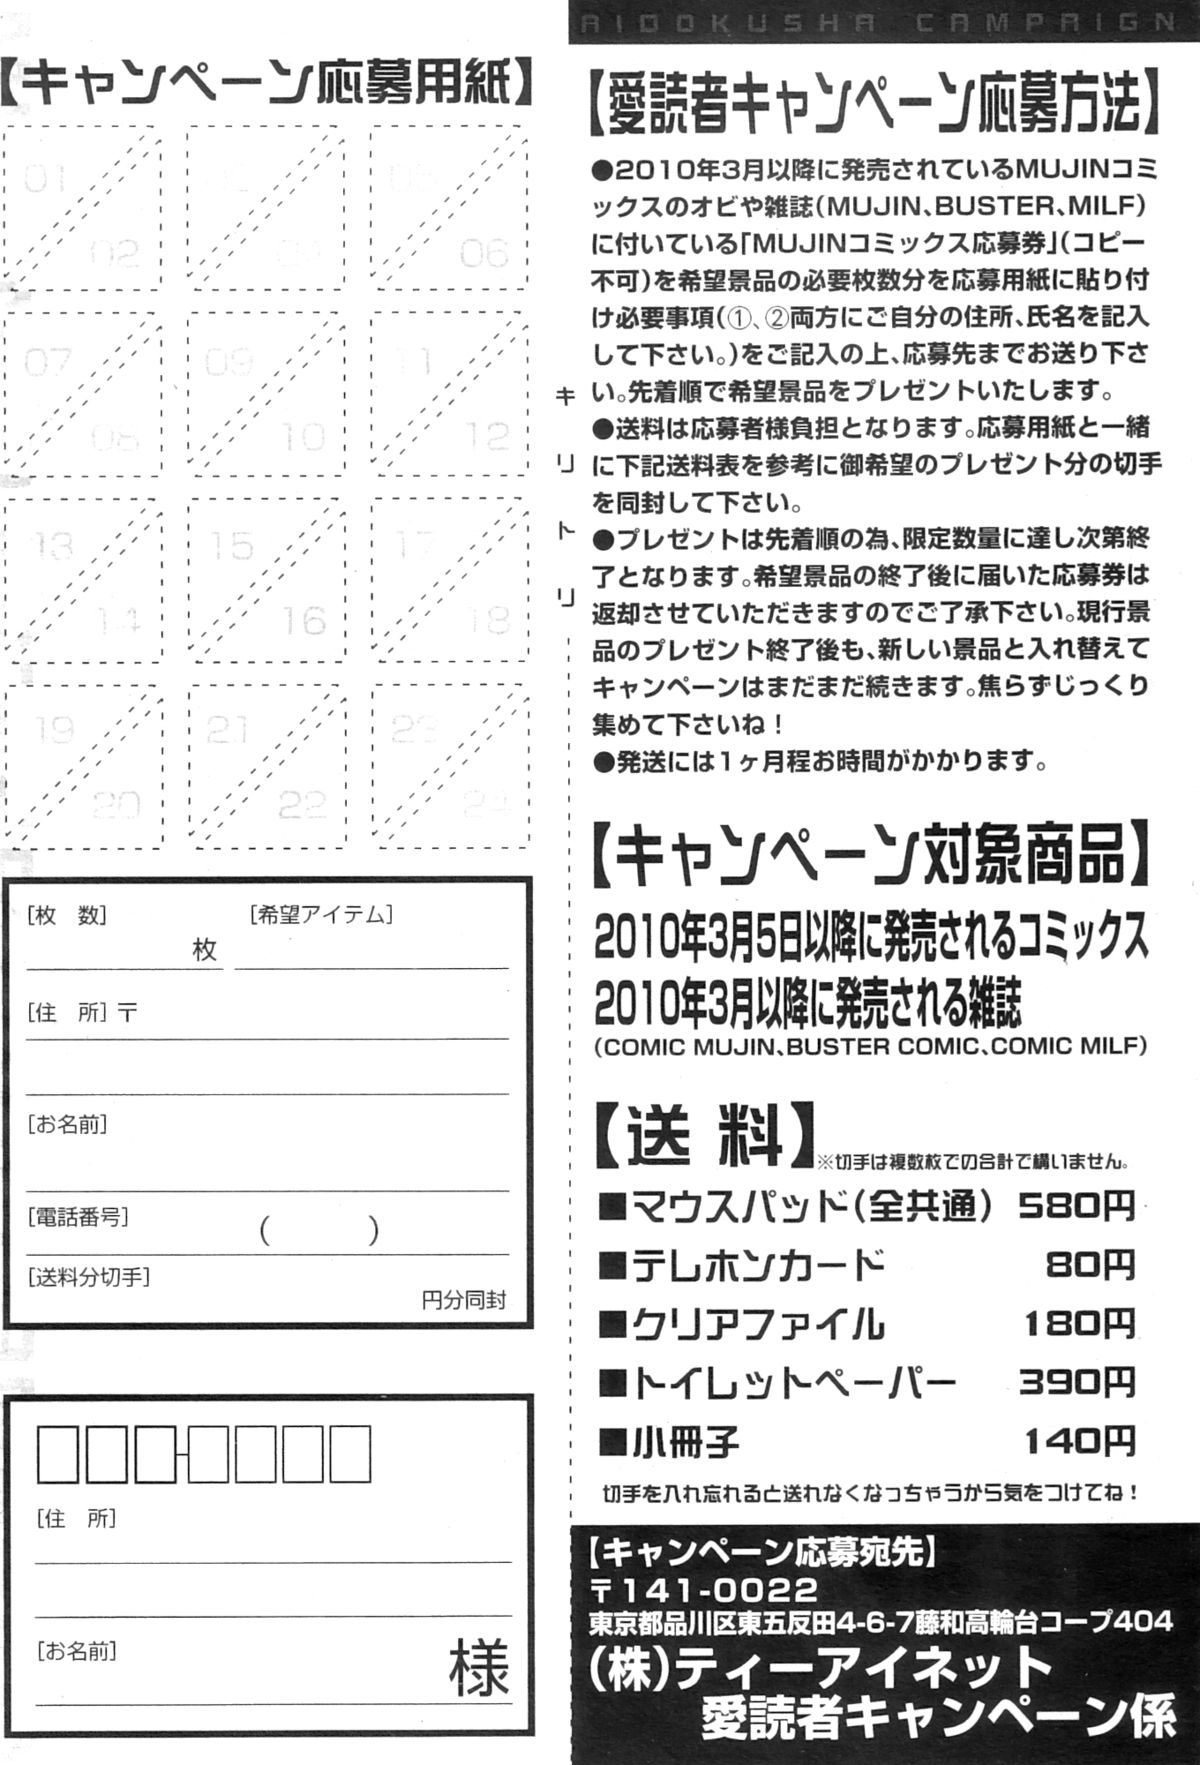 AIDOKUSHA CAMPAIGN
【愛読者キャンペーン応募方法】
●2010年3月以降に発売されているMUJINコミ
ックスのオビや雑誌(MUJIN、BUSTER、MILF)
に付いている「MUJINコミックス応募券」(コピー
不可)を希望景品の必要枚数分を応募用紙に貼り付
け必要事項(①、②両方にご自分の住所、氏名を記入
して下さい。)をご記入の上、応募先までお送り下さ
い。先着順で希望景品をプレゼントいたします。
●送料は応募者様負担となります。応募用紙と一緒
に下記送料表を参考に御希望のプレゼント分の切手
を同封して下さい。
●プレゼントは先着順の為、限定数量に達し次第終
了となります。希望景品の終了後に届いた応募券は
返却させていただきますのでご了承下さい。現行景
品のプレゼント終了後も、新しい景品と入れ替えて
キャンペーンはまだまだ続きます。焦らずじっくり
集めて下さいね！
●発送には1ヶ月程お時間がかかります。
【キャンペーン対象商品】
2010年3月5日以降に発売されるコミックス
2010年3月以降に発売される雑誌
(COMIC MUJIN、BUSTER COMIC、COMIC MILF)
【送 料】※切手は複数枚での合計で構いません。
■マウスパッド(全共通) 580円
■テレホンカード 80円
■クリアファイル 180円
■トイレットペーパー 390円
■小冊子 140円
切手を入れ忘れると送れなくなっちゃうから気をつけてね！
【キャンペーン応募宛先】
〒141-0022
東京都品川区東五反田4-6-7藤和高輪台コープ404
(株)ティーアイネット
愛読者キャンペーン係
キリトリ
【キャンペーン応募用紙】
01 05
02 06
07 09 11
08 10 12
13 15 17
14 16 18
19 21 23
20 22 24
[枚 数] [希望アイテム]
枚
[住 所]〒
[お名前]
[電話番号] ( )
[送料分切手]
円分同封
[住 所]
[お名前]
様